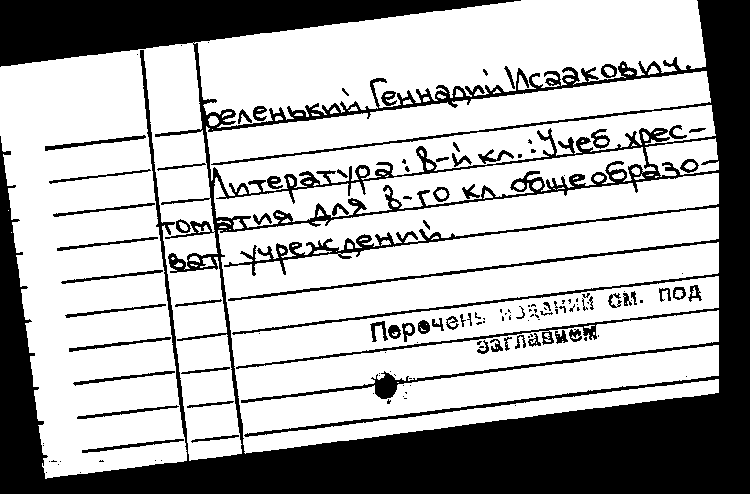 Беленький, Геннадий Исаакович.
Литература: 8-й кл.: Учеб. хрес-
томатия для 8-го кл. общеобразо-
ват. учреждений.
Перечень изданий см. под
заглавием